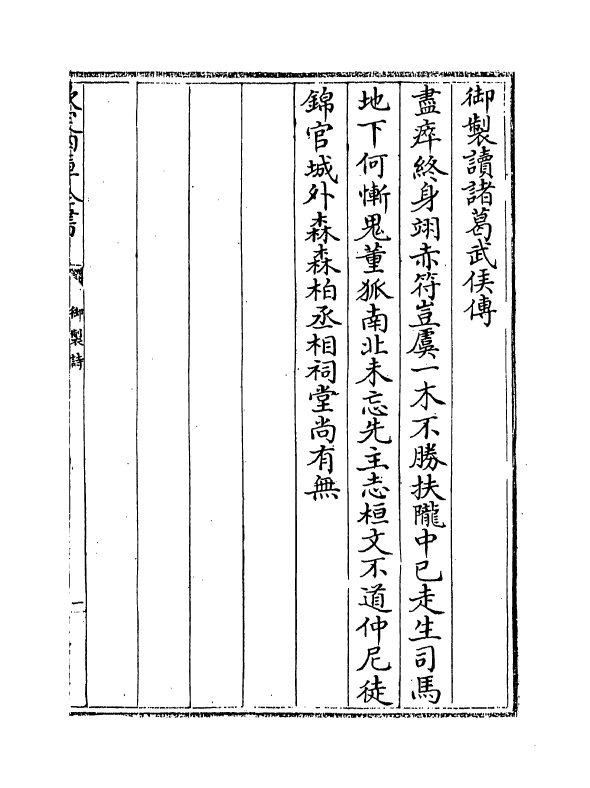 御製讀諸葛武侯傳
盡瘁終身翊赤符豈虞一木不勝扶隴中已走生司馬
地下何慚鬼董狐南北未忘先主志桓文不道仲尼徒
錦官城外森森柏丞相祠堂尚有無
御製詩
一